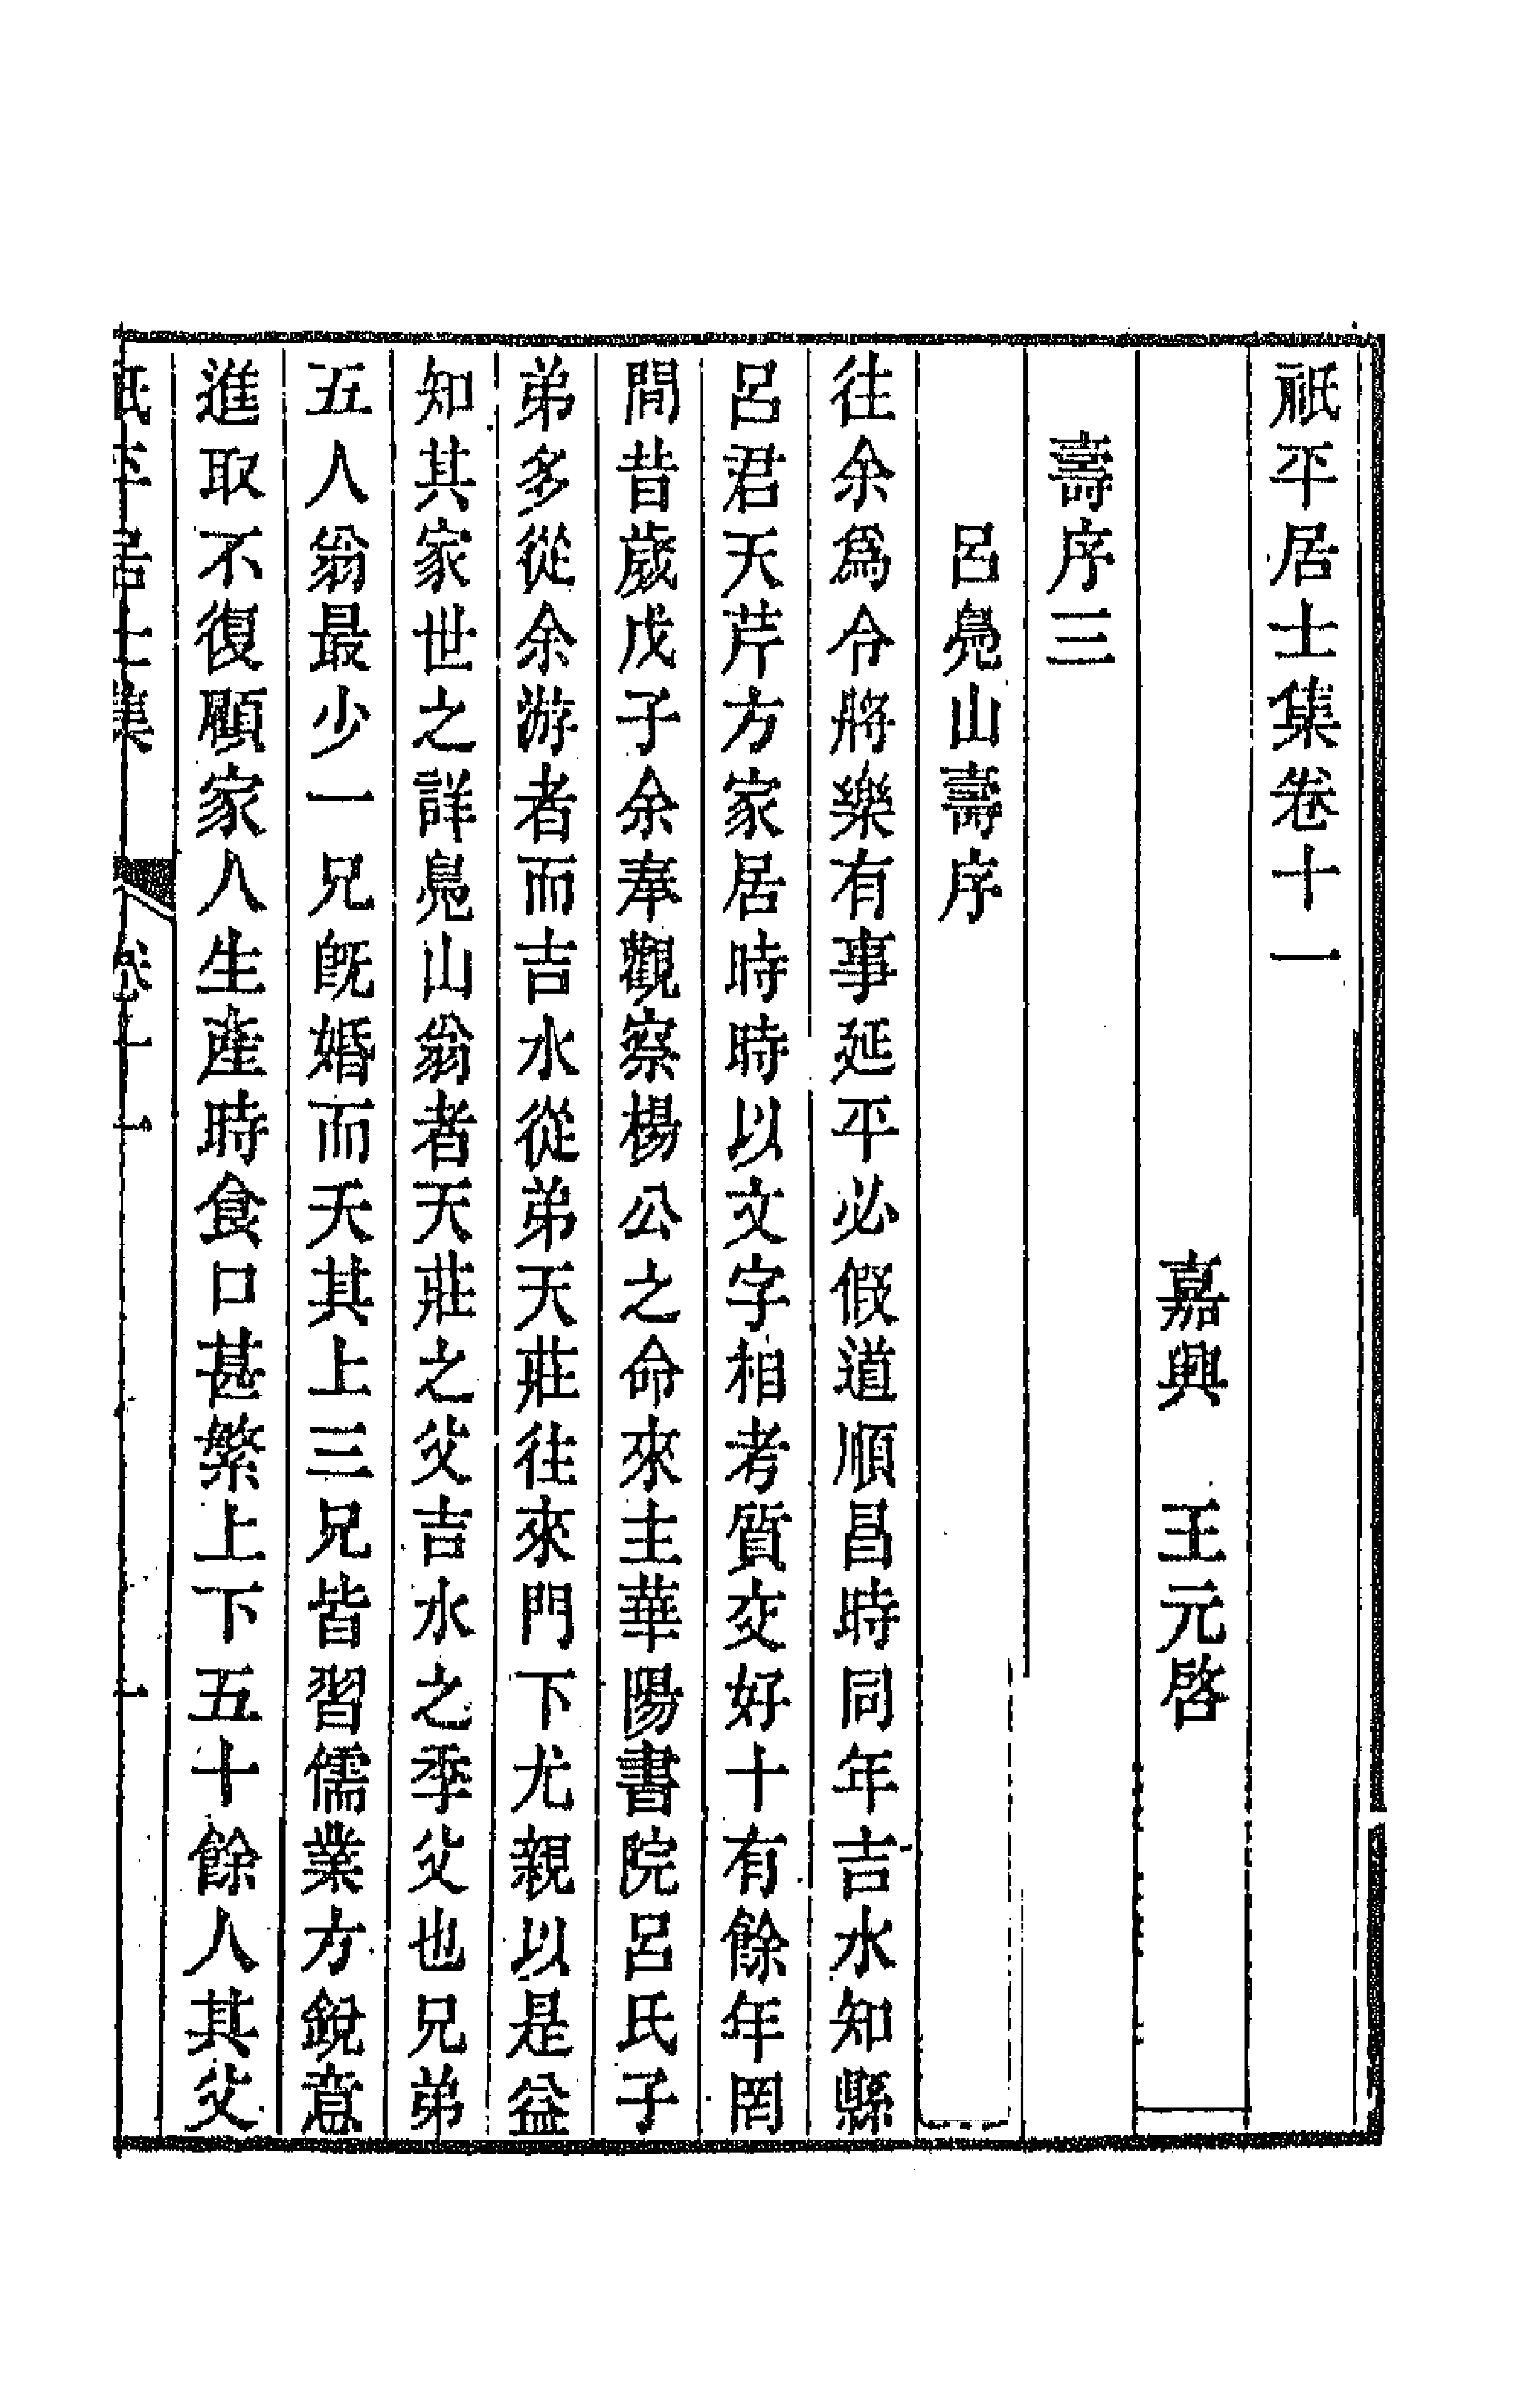 祇平居士集卷十一
嘉興　王元啓
壽序三
呂鳧山壽序
往余爲令將樂有事延平必假道順昌時同年吉水知縣
呂君天芹方家居時時以文字相考質交好十有餘年罔
間昔歲戊子余奉觀察楊公之命來主華陽書院呂氏子
弟多從余游者而吉水從弟天莊往來門下尤親以是益
知其家世之詳鳧山翁者天莊之父吉水之季父也兄弟
五人翁最少一兄旣婚而夭其上三兄皆習儒業方銳意
進取不復顧家人生產時食口甚繁上下五十餘人其父
祇平居士集　卷十一　一